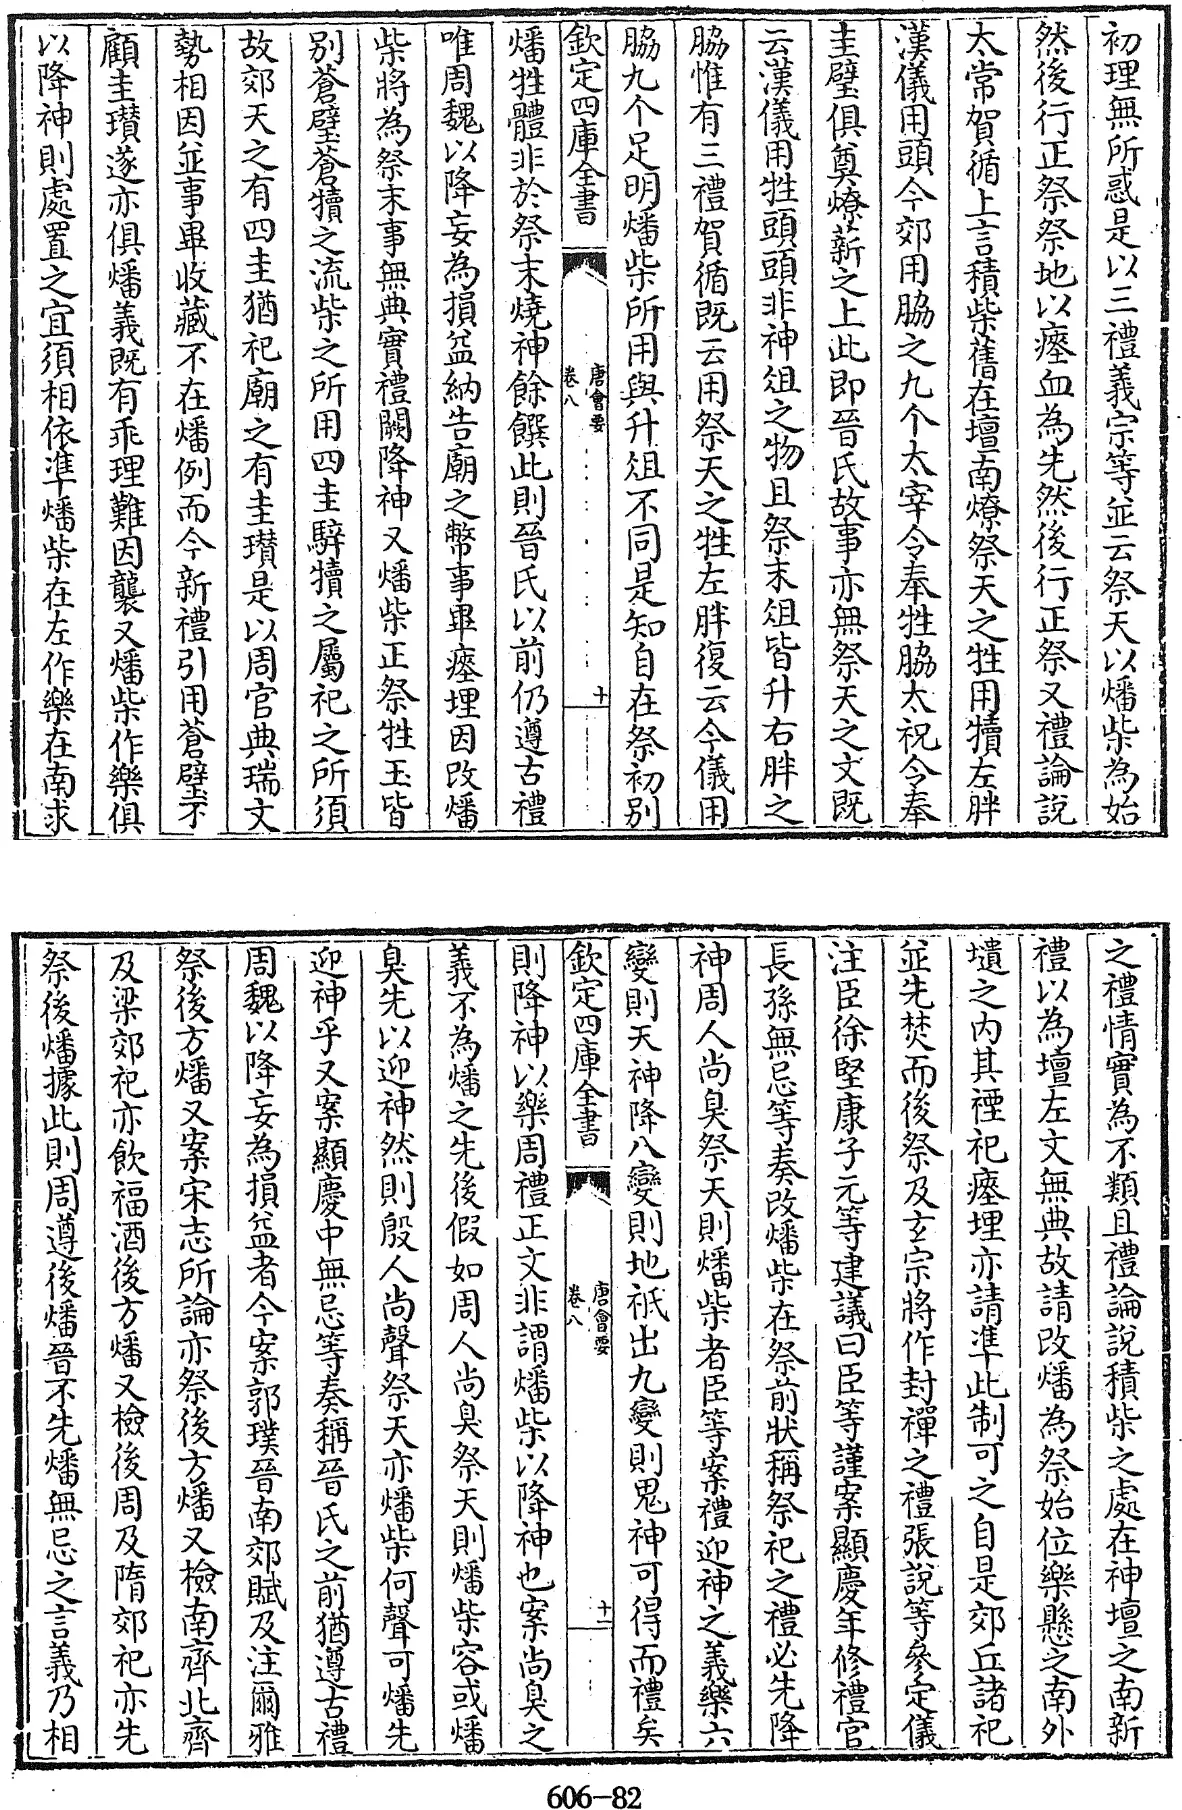 初理無所惑是以三禮義宗等並云祭天以燔柴為始
然後行正祭祭地以瘞血為先然後行正祭又禮論說
太常賀循上言積柴舊在壇南燎祭天之牲用犢左胖
漢儀用頭今郊用脇之九个太宰令奉牲脇太祝令奉
圭璧俱奠燎薪之上此即晉氏故事亦無祭天之文既
云漢儀用牲頭頭非神俎之物且祭末俎皆升右胖之
脇惟有三禮賀循既云用祭天之牲左胖復云今儀用
脇九个足明燔柴所用與升俎不同是知自在祭初別
欽定四庫全書
唐會要
卷八
十
燔牲體非於祭末燒神餘饌此則晉氏以前仍遵古禮
唯周魏以降妄為損益納告廟之幣事畢瘞埋因改燔
柴將為祭末事無典實禮闕降神又燔柴正祭牲玉皆
別蒼璧蒼犢之流柴之所用四圭騂犢之屬祀之所須
故郊天之有四圭猶祀廟之有圭瓚是以周官典瑞文
勢相因並事畢收藏不在燔例而今新禮引用蒼璧不
顧圭瓚遂亦俱燔義既有乖理難因襲又燔柴作樂俱
以降神則處置之宜須相依準燔柴在左作樂在南求
之禮情實為不類且禮論說積柴之處在神壇之南新
禮以為壇左文無典故請改燔為祭始位樂懸之南外
壝之內其禋祀瘞埋亦請準此制可之自是郊丘諸祀
並先焚而後祭及玄宗將作封禪之禮張說等參定儀
注臣徐堅康子元等建議曰臣等謹案顯慶年修禮官
長孫無忌等奏改燔柴在祭前狀稱祭祀之禮必先降
神周人尚臭祭天則燔柴者臣等案禮迎神之義樂六
變則天神降八變則地祇出九變則鬼神可得而禮矣
欽定四庫全書
唐會要
卷八
十一
則降神以樂周禮正文非謂燔柴以降神也案尚臭之
義不為燔之先後假如周人尚臭祭天則燔柴容或燔
臭先以迎神然則殷人尚聲祭天亦燔柴何聲可燔先
迎神乎又案顯慶中無忌等奏稱晉氏之前猶遵古禮
周魏以降妄為損益者今案郭璞晉南郊賦及注爾雅
祭後方燔又案宋志所論亦祭後方燔又檢南齊北齊
及梁郊祀亦飲福酒後方燔又檢後周及隋郊祀亦先
祭後燔據此則周遵後燔晉不先燔無忌之言義乃相
606-82